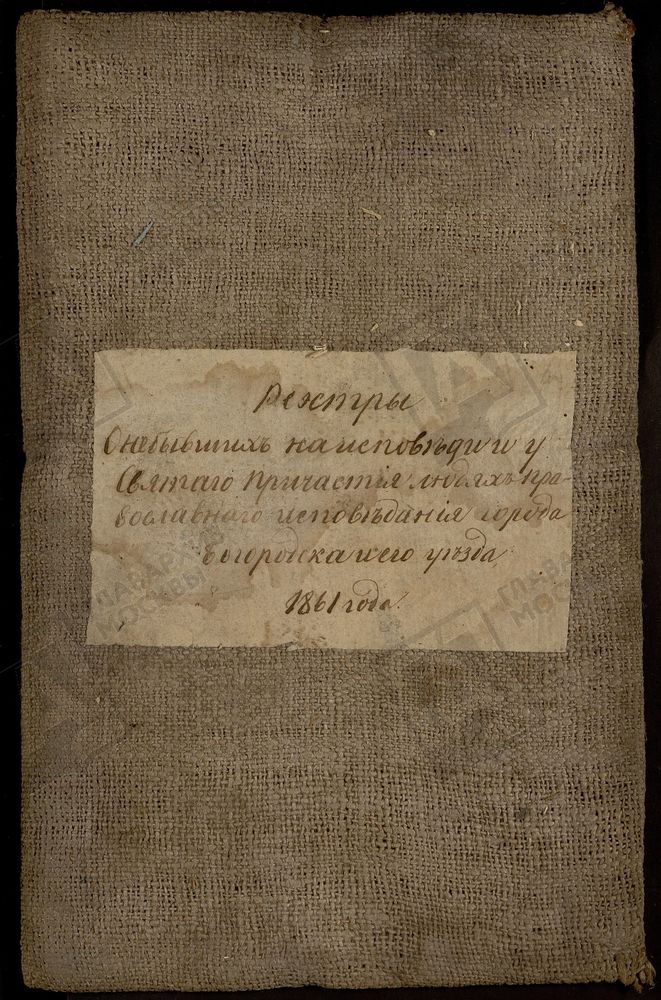 Реэстры
О небывшихъ на исповѣди и у
Святаго Причастія людяхъ пра-
вославнаго исповѣданія города
Богородска и его уѣзда
1861 года.
ГЛАВАРХИВ
МОСКВЫ